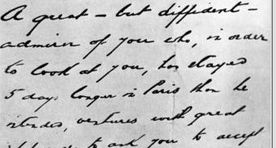 A great – but diffident –
admirer of you who, in order
to look at you, has stayed
5 days longer in Paris than he
intended, ventures with great
to ask you to accept